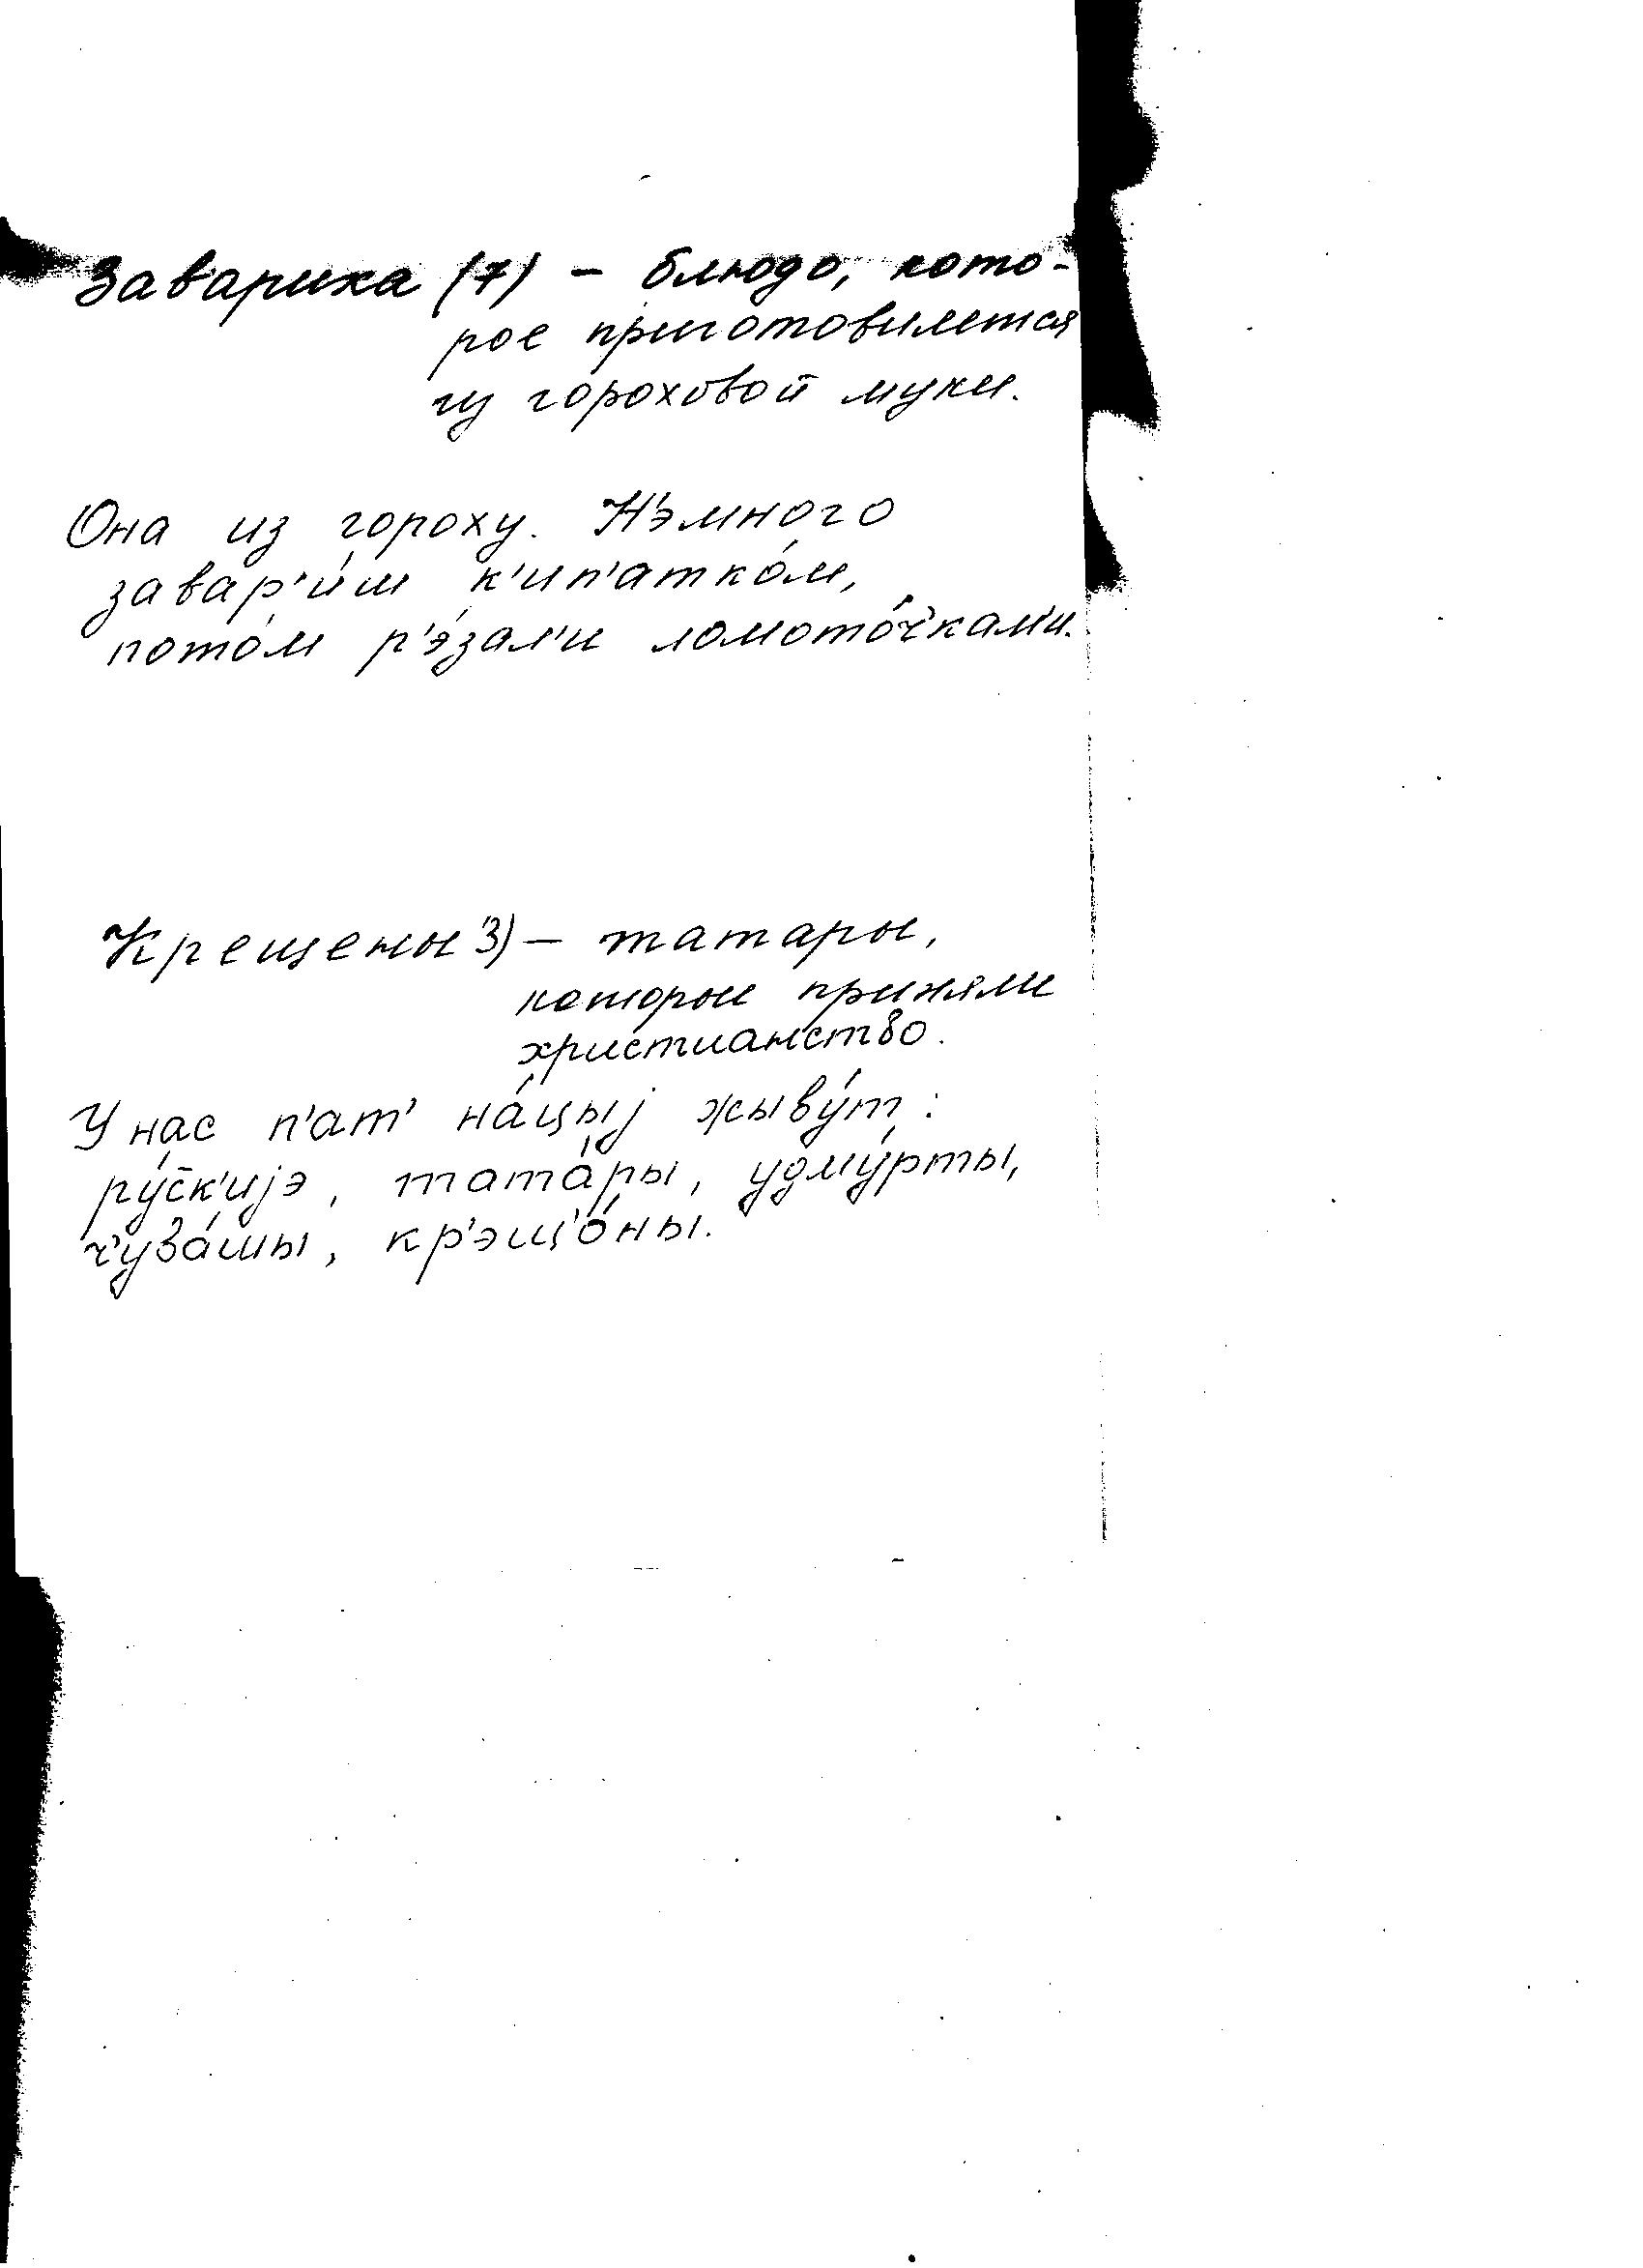 Завариха (7) – блюдо, кото-
рое приготовилется
из гороховой муки.
Она из гороху. Н'эмного
завар'и́ш к'ип'атко́м,
пото́м р'э́зал'и ломото́ч'кам'и.
Крещены 3) – татары,
которые приняли
христианство.
У нас п'ат' на́цыj жыву́т:
ру́с̄к'иjэ, тата́ры, удму́рты,
ч'ува́шы, кр'эщ'о́ны.